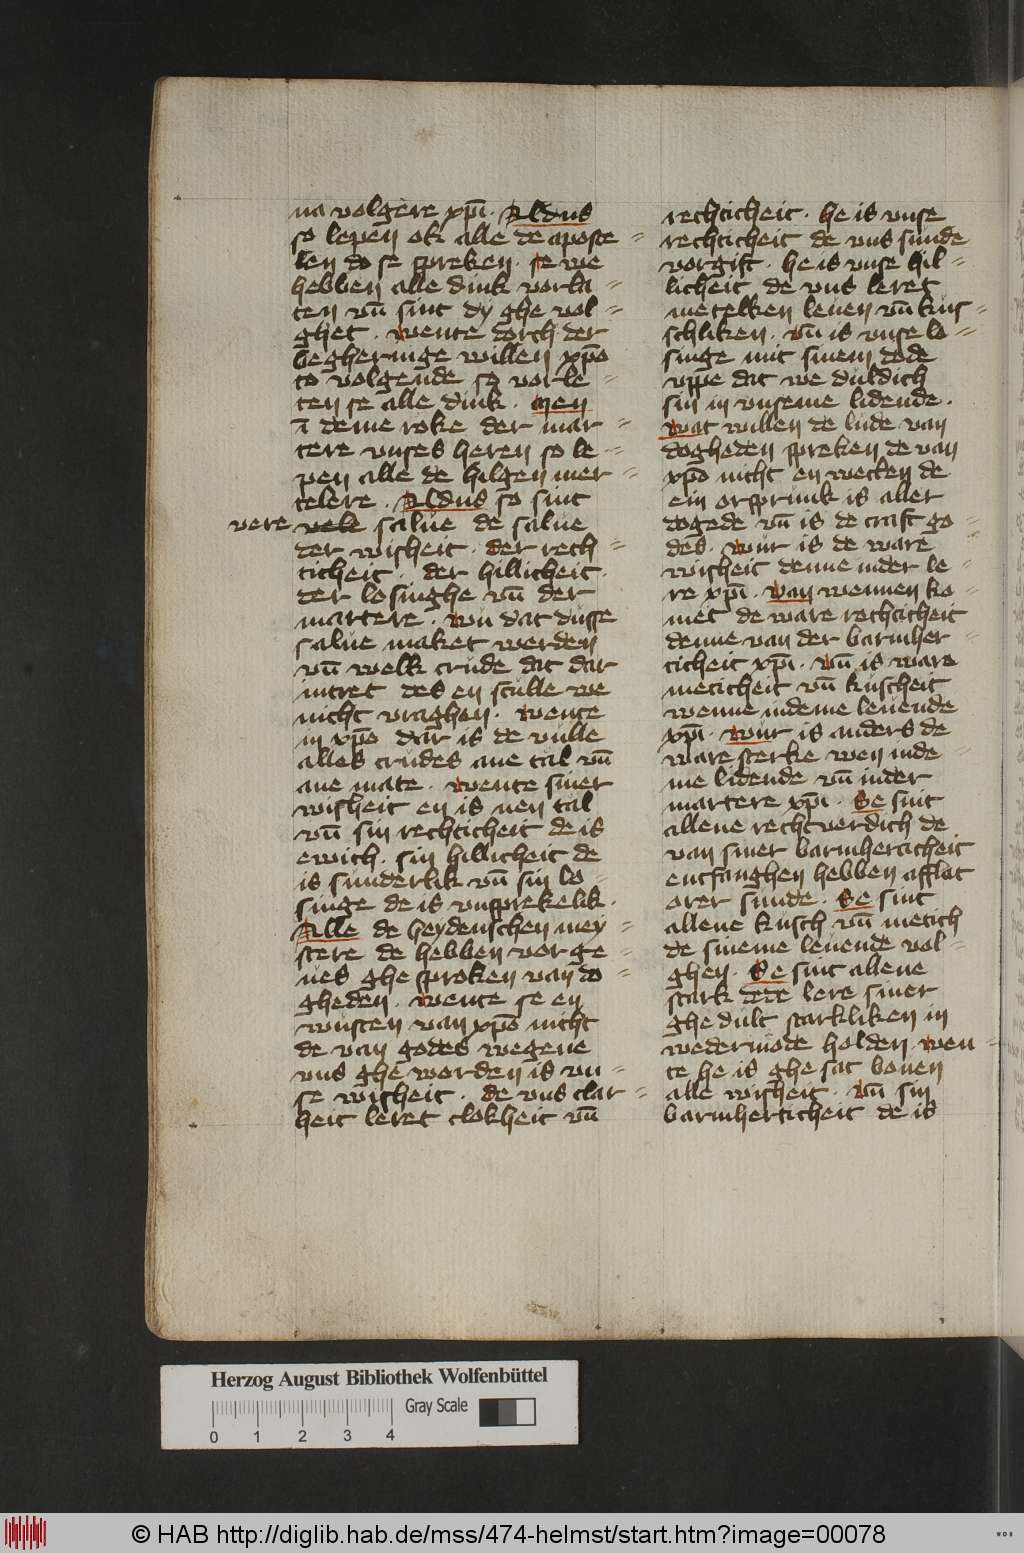 na volgere xpī. Aldus
so lepen ok alle de aposte=
len do se spreken. se we
hebben alle dink vorla=
ten vn̄ sint dy ghe vol=
ghet. wente dorch der
begheringe willen xp̄o
to volgende so vorle=
ten se alle dink. Men
ī deme roke der mar=
tere vnses heren so le=
pen alle de hilgen mer=
telere. Aldus so sint
vere vele salue de salue
der wisheit. der rech=
ticheit. der hillicheit.
der losinghe vn̄ der
martere. wu dat dusse
salue maket werden
vn̄ welk crude dat dar
intret des en sculle we
nicht vraghen. wente
in xp̄o dar is de vulle
alles crudes ane tal vn̄
ane mate. wente siner
wisheit en is nen tal
vn̄ sin rechticheit de is
ewich. sin hillicheit de
is sunderlik vn̄ sin lo=
singe de is vnsprekelik.
Alle de heydenschen mey=
stere de hebben vorge=
ues ghe sproken van do=
gheden. wente se en
wusten van xp̄o nicht
de van godes wegene
vns ghe worden is vn=
se wisheit. de vns clar=
heit leret clokheit vn̄
rechticheit. he is vnse
rechticheit de vns sunde
vorgift. he is vnse hil=
licheit de vns leret
metelken leuen vn̄ kus=
schliken. vn̄ is vnse lo=
singe mit sinem dode
vppe dat we duldich
sin in vnseme lidende.
Wat willen de lude van
dogheden spreken de van
xp̄o nicht en wecken de
ein orsprunk is aller
dogede vn̄ is de craft go=
des. wur is de ware
wisheit denne in der le=
re xpī. van wennen ko=
met de ware rechticheit
denne van der barmher=
ticheit xpī. vn̄ is ware
meticheit vn̄ kuscheit
wenne in deme leuende
xpī. wur is anders de
ware sterke wen in de=
me lidende vn̄ in der
martere xpī. Se sint
allene recht verdich de
van siner barmherticheit
entfanghen hebben afflat
orer sunde. Se sint
allene kusch vn̄ metich
de sineme leuende vol=
ghen. Se sint allene
stark de de lere siner
ghe dult starkliken in
wedermode holden. wen=
te he is ghe sat bouen
alle wisheit. vn̄ sin
barmherticheit de is
Herzog August Bibliothek Wolfenbüttel
Gray Scale
0 1 2 3 4
© HAB http://diglib.hab.de/mss/474-helmst/start.htm?image=00078